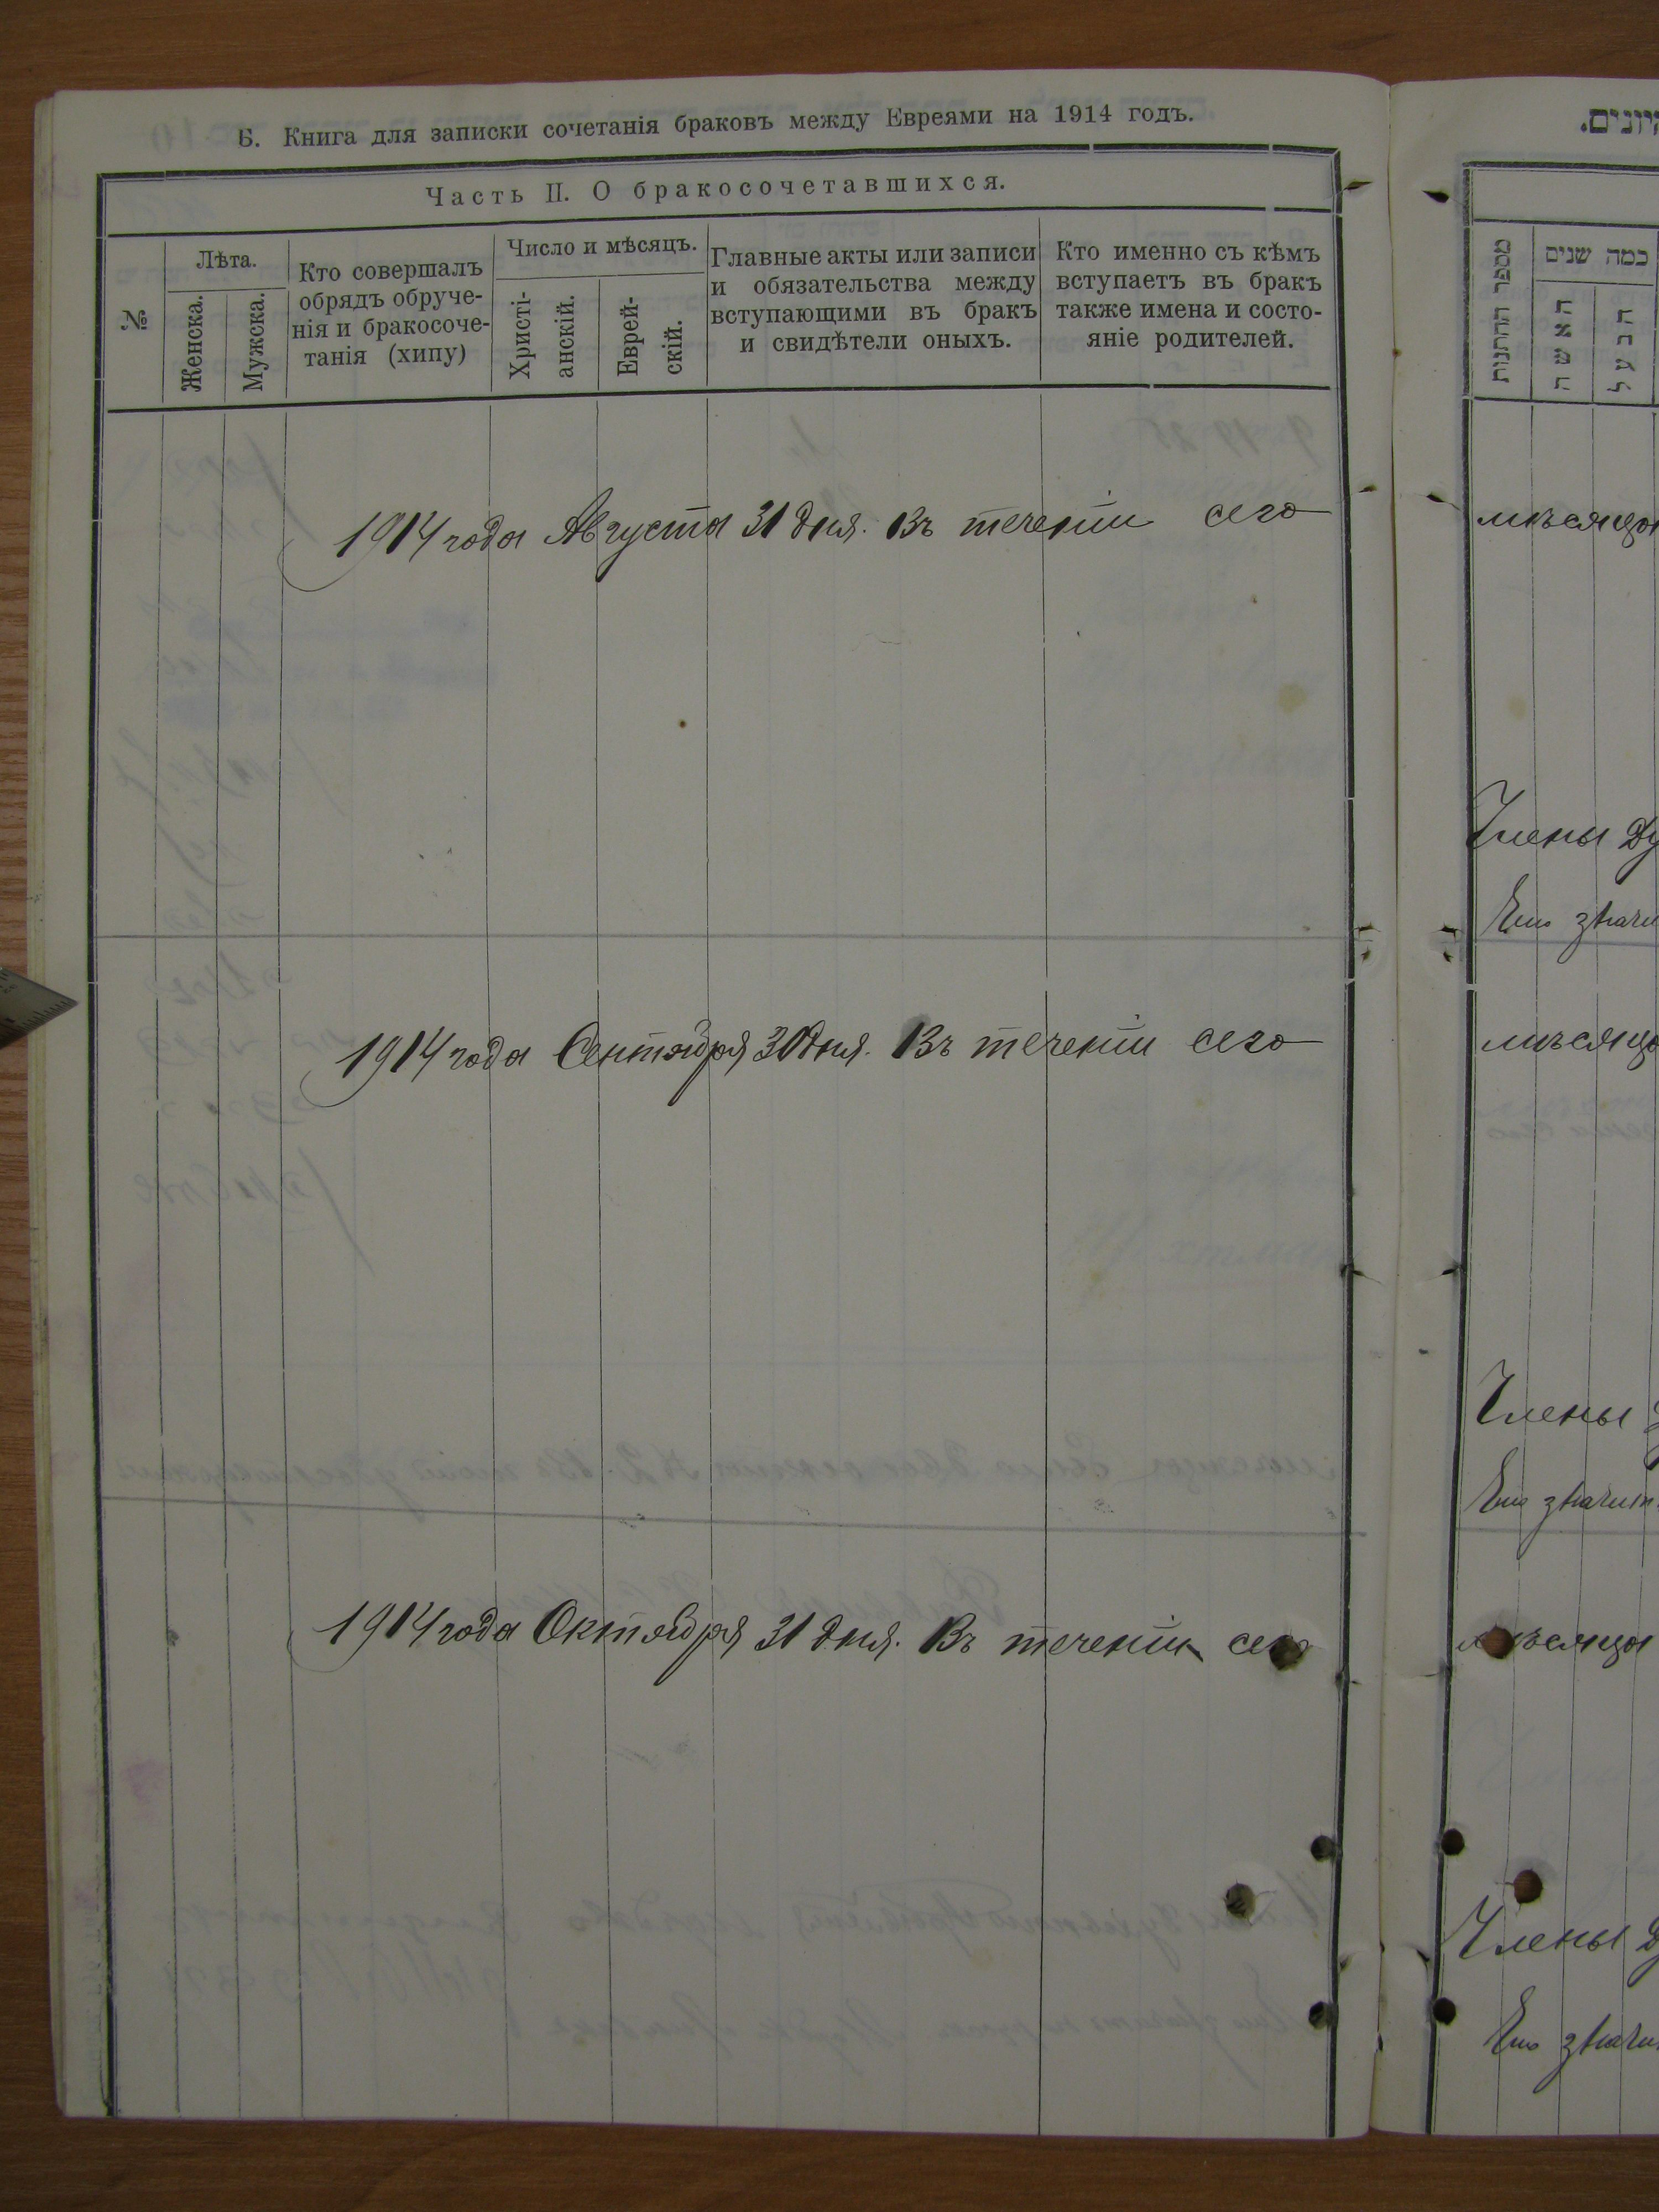 Б. Книга для записки сочетанія браковъ между Евреями на 1914 годъ.
Часть II. О бракосочетавшихся.
№
Лѣта.
Женска.
Мужска.
Кто совершалъ
обрядъ обруче-
нія и бракосоче-
танія (хипу)
Число и мѣсяцъ.
Христі-
анскій.
Еврей-
скій.
Главные акты или записи
и обязательства между
вступающими въ бракъ
и свидѣтели оныхъ.
Кто именно съ кѣмъ
вступаетъ въ бракъ
также имена и состо-
яніе родителей.
1914 года Августа 31 дня. Въ теченіи сего
1914 года Сентября 30 дня. Въ теченіи сего
1914 года Октября 31 дня. Въ теченіи сего
מספר החתנות
כמה שנים
האשה
הבעל
мѣсяца
Члены Ду
мѣсяца
Члены
мѣсяца
Члены Д